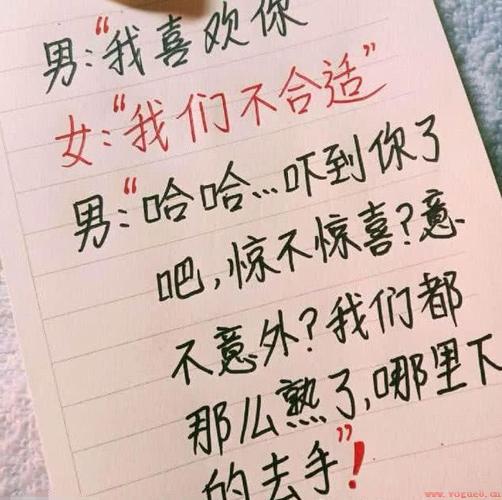 男:“我喜欢你
女:“我们不合适”
男:“哈哈...吓到你了
吧,惊不惊喜?意
不意外?我们都
那么熟了,哪里下
的去手”!
www.vogueo.cn